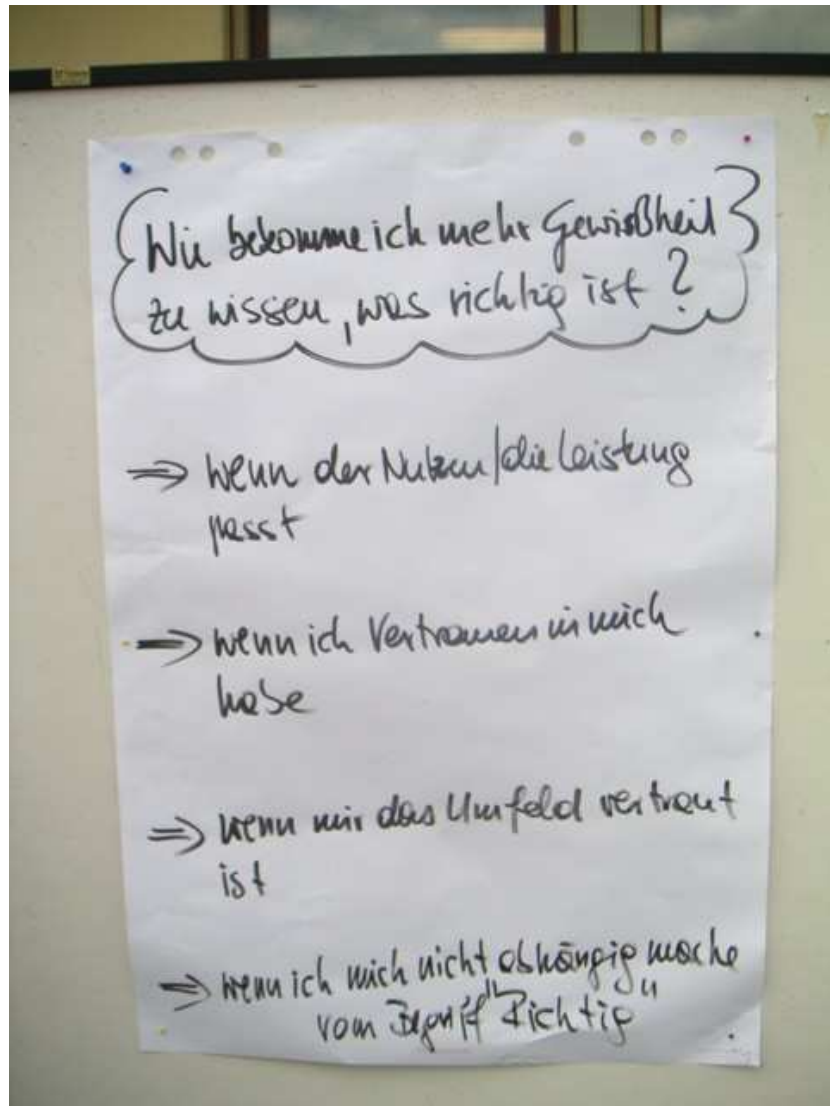 Wie bekomme ich mehr Gewißheit
zu wissen, was richtig ist?
⇒ wenn der Nutzen/die Leistung
passt
⇒ wenn ich Vertrauen in mich
habe
⇒ wenn mir das Umfeld vertraut
ist
⇒ wenn ich mich nicht abhängig mache
vom Begriff "Richtig"